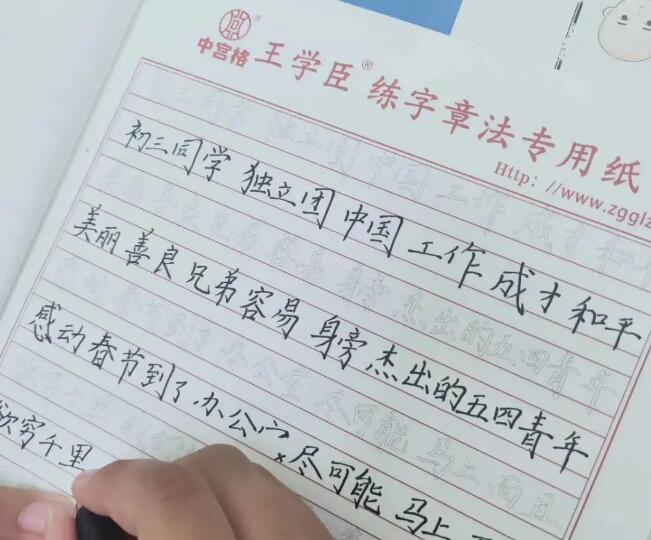 中宫格® 王学臣® 练字章法专用纸
Http: //www.zgglz
初三同学 独立团 中国 工作 成才和平
美丽善良兄弟容易 身旁 杰出的五四青年
感动春节到了 办公宀×尽可能 马上
欲穷千里